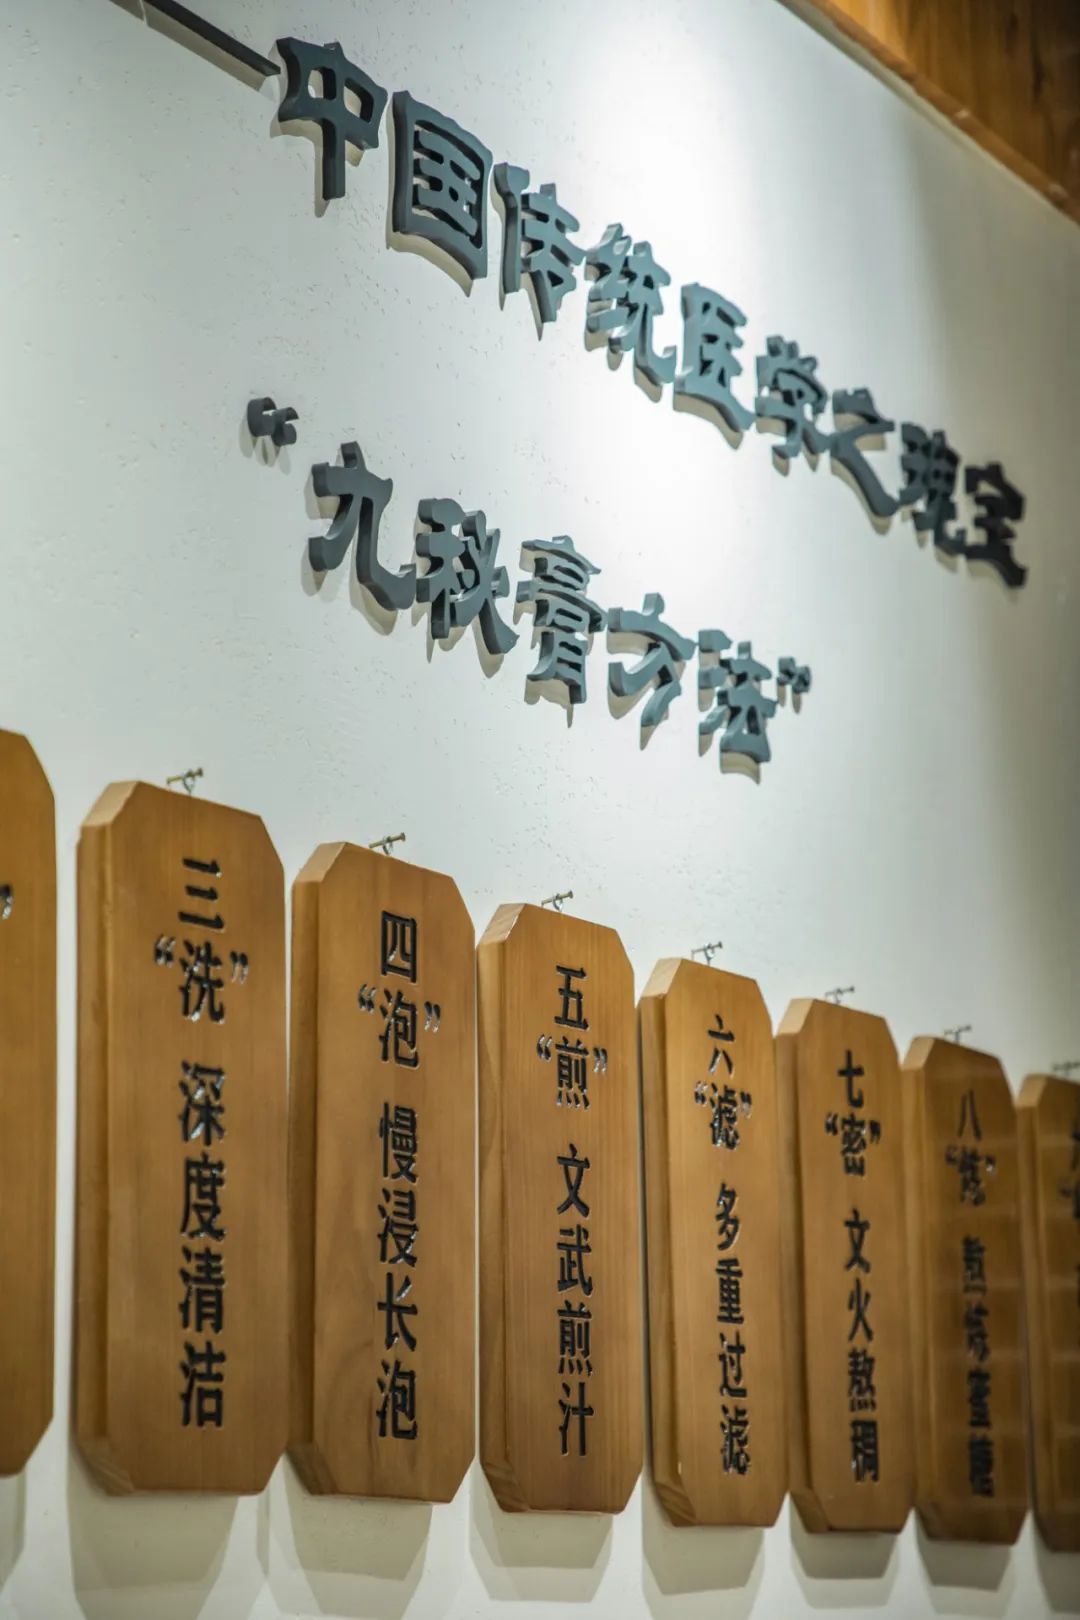 一中国传统医学之瑰宝
“九秘膏方法”
三“洗” 深度清洁
四“泡” 慢浸长泡
五“煎” 文武煎汁
六“滤” 多重过滤
七“密” 文火熬稠
八“炼” 熬炼蜜糖